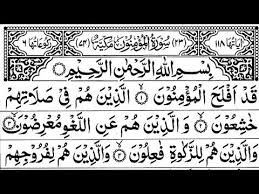 اٰیَاتُهَا ۱۱۸ (۲۳) سُوْرَةُ الْمُؤْمِنُوْنَ مَكِّیَّةٌ (۷۴) رُكُوْعَاتُهَا ۶
بِسْمِ اللّٰهِ الرَّحْمٰنِ الرَّحِیْمِ
قَدْ اَفْلَحَ الْمُؤْمِنُوْنَ ۱ الَّذِیْنَ هُمْ فِیْ صَلَاتِهِمْ
خٰشِعُوْنَ ۲ وَالَّذِیْنَ هُمْ عَنِ اللَّغْوِ مُعْرِضُوْنَ ۳
وَالَّذِیْنَ هُمْ لِلزَّكٰوةِ فٰعِلُوْنَ ۴ وَالَّذِیْنَ هُمْ لِفُرُوْجِهِمْ